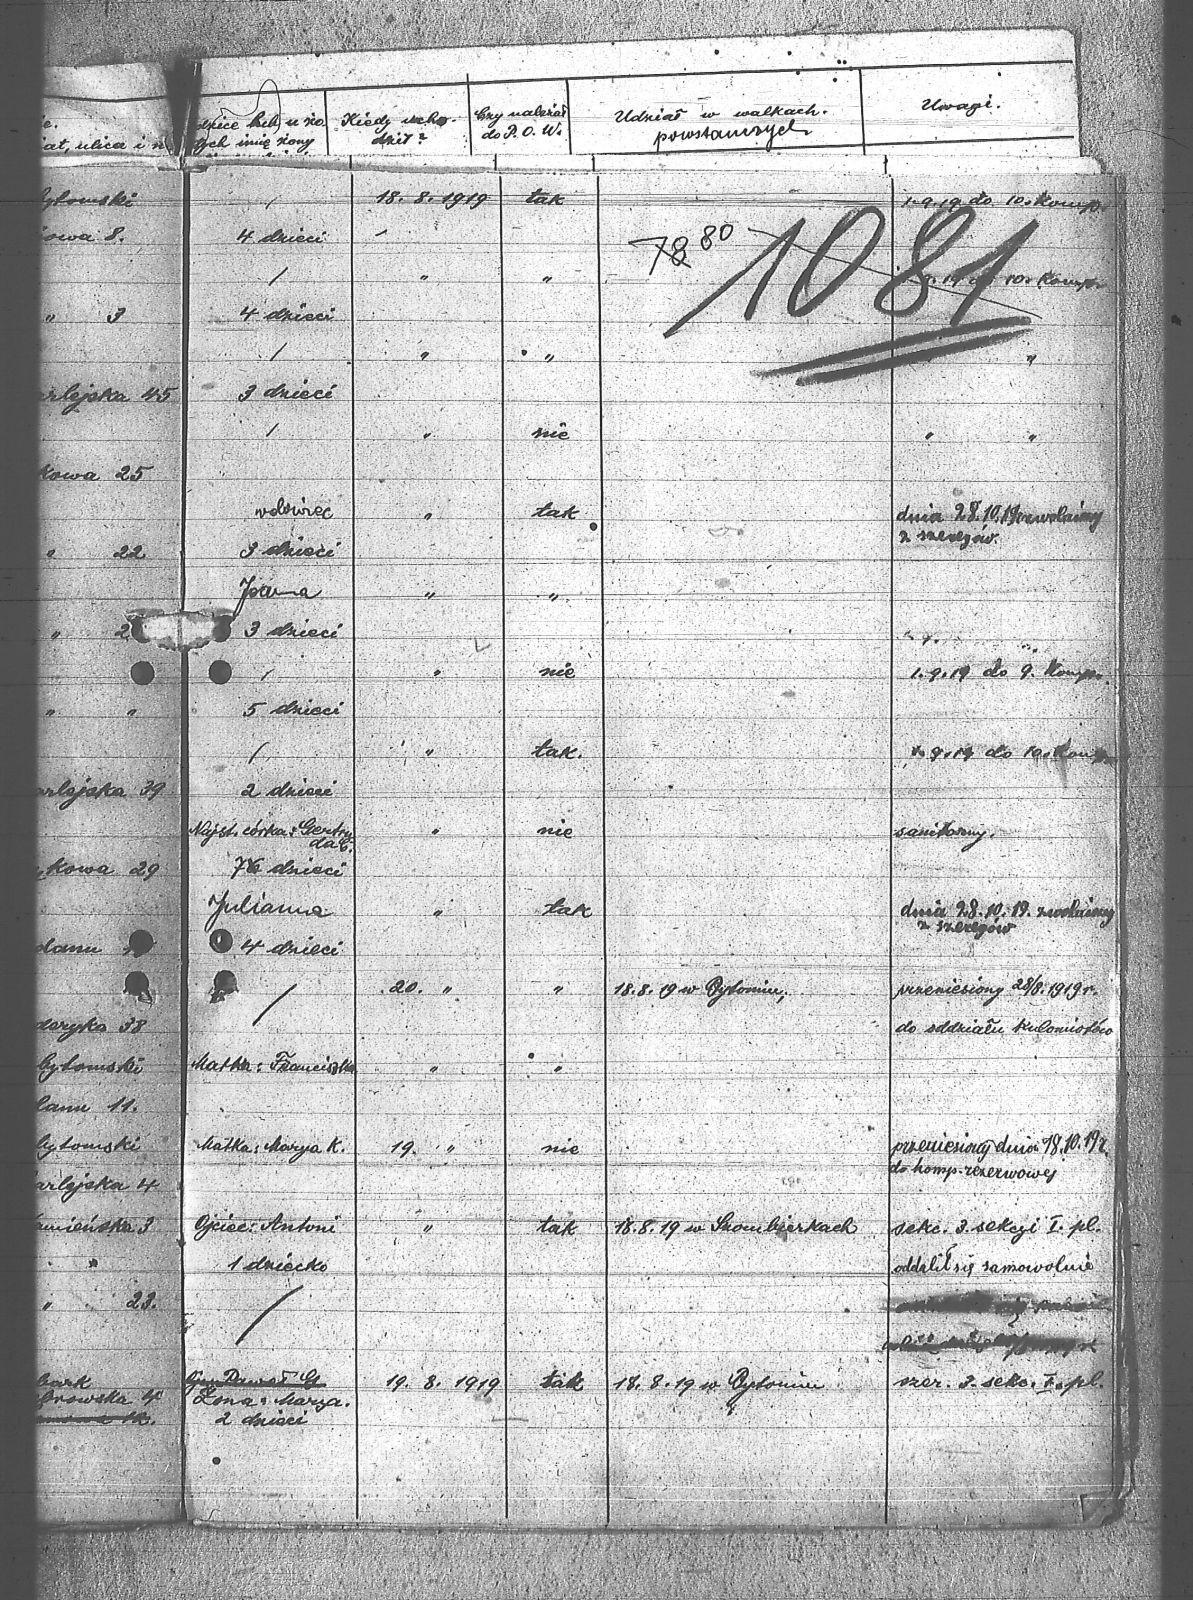 Kiedy
dził?
Czy należał
do P.O.W.
Udział w walkach
powstańczych
Uwagi.
at, ulica i
tych imię żony
ytomski / 18.8.1919 tak 1.9.19 do 10. Komp.
owa 8. 4 dzieci
78 80
1081
/ " " 9.19 do 10. Komp.
" 3 4 dzieci
/ " " "
arlejska 45 3 dzieci
/ " nie " "
kowa 25
wdowiec " tak dnia 28.10.19 zwolniony
z szeregów.
" 22 3 dzieci
" "
" 2 3 dzieci
/ " nie 1.9.19 do 9. Komp.
" " 5 dzieci
/ " tak. 1.9.19 do 10. Komp.
arlejska 39 2 dzieci
Najst. córka: Gertru " nie sanitarny.
da C.
kowa 29 dzieci
Julianna " tak dnia 28.10.19. zwolniony
z szeregów
danu 4 dzieci
/ 20. " " 18.8.19 w Bytomiu, przeniesiony 28/8.1919 r.
deryka 38 do oddziału kulomiotów
bytomski Matka: Franciszka " "
danu 11.
bytomski Matka: Marya K. 19. " nie przeniesiony dnia 18.10.19 r.
do komp. rezerwowej
arlejska 4
amieńska 3 Ojciec: Antoni " tak 18.8.19 w Szombierkach sekc. 3. sekcji I. pl.
1 dziecko oddalił się samowolnie
" 23. /
bark Paweł G 19.8.1919 tak 18.8.19 w Bytomiu szer. 3. sekc. I. pl.
browska 4 Żona: Marya.
2 dzieci